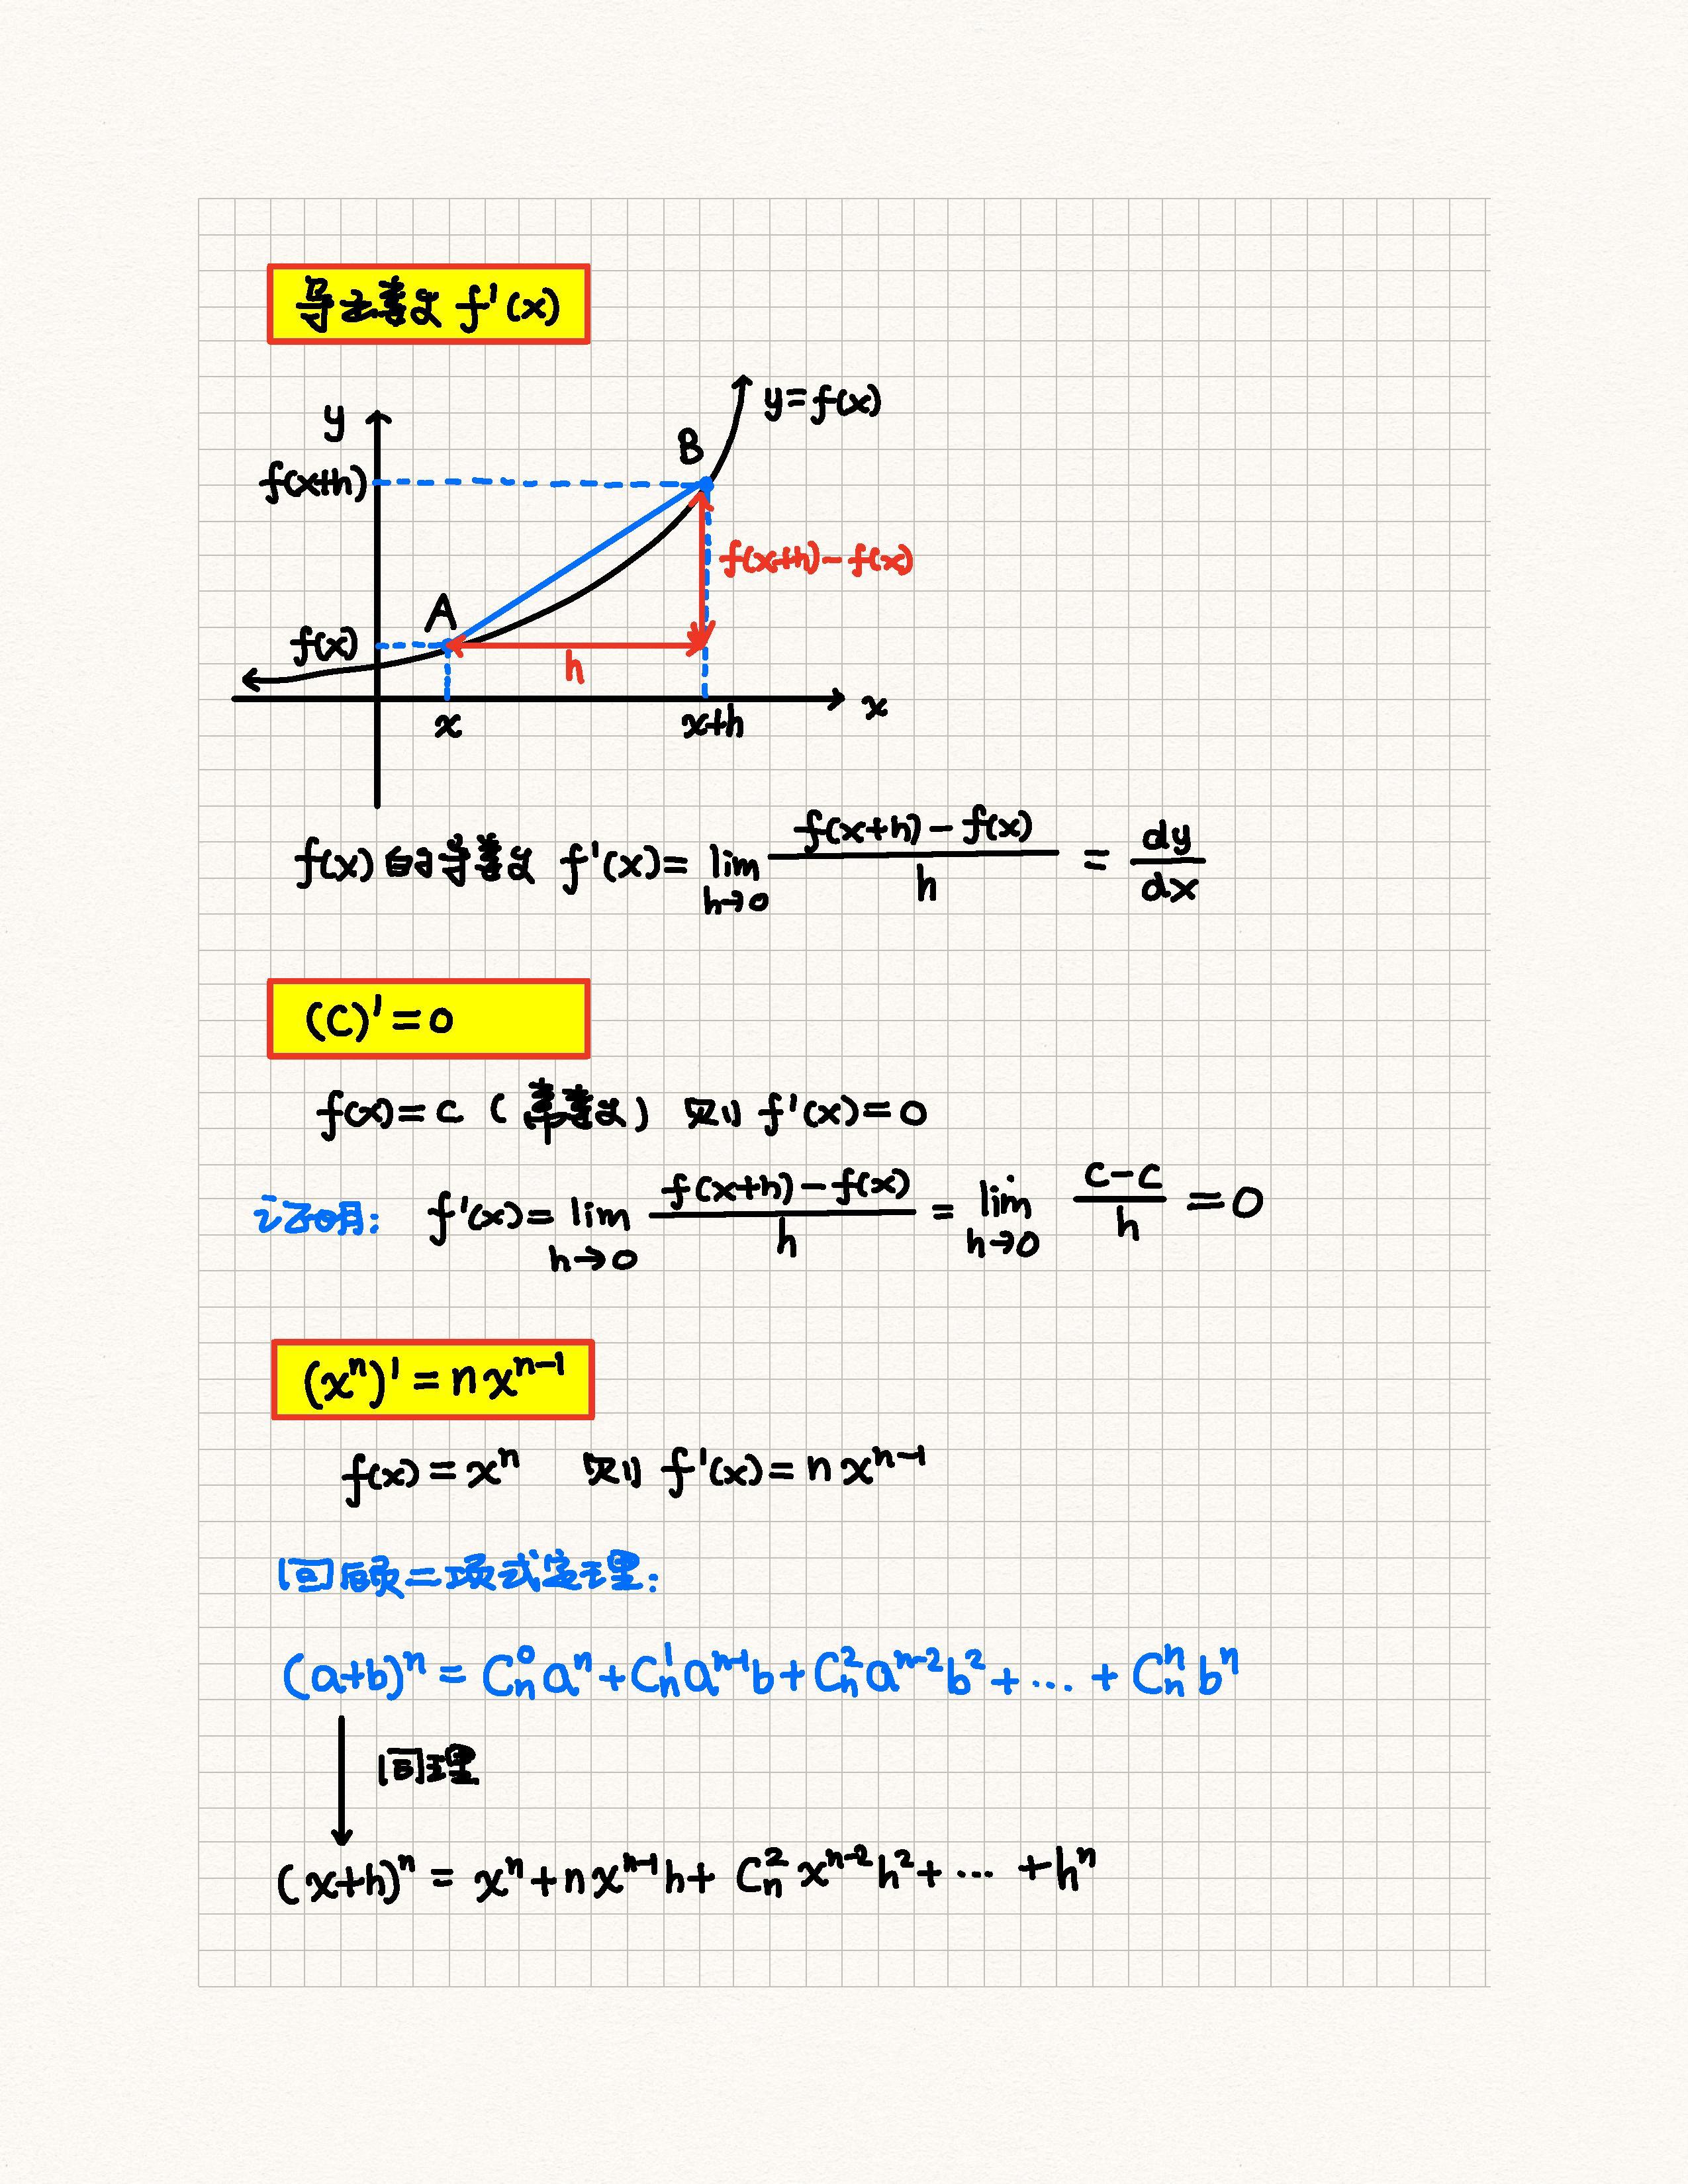 导数 f'(x)
y
y=f(x)
B
f(x+h)
f(x+h)-f(x)
A
f(x)
h
x
x
x+h
f(x) 的导数 f'(x)= lim h→0 (f(x+h)-f(x))/h = dy/dx
(C)'=0
f(x)=c (常数) 则 f'(x)=0
证明: f'(x)= lim h→0 (f(x+h)-f(x))/h = lim h→0 (c-c)/h =0
(xⁿ)'=nxⁿ⁻¹
f(x)=xⁿ 则 f'(x)=nxⁿ⁻¹
回顾二项式定理:
(a+b)ⁿ = C⁰ₙaⁿ+C¹ₙaⁿ⁻¹b+C²ₙaⁿ⁻²b²+...+Cⁿₙbⁿ
同理
(x+h)ⁿ = xⁿ+nxⁿ⁻¹h+C²ₙxⁿ⁻²h²+...+hⁿ